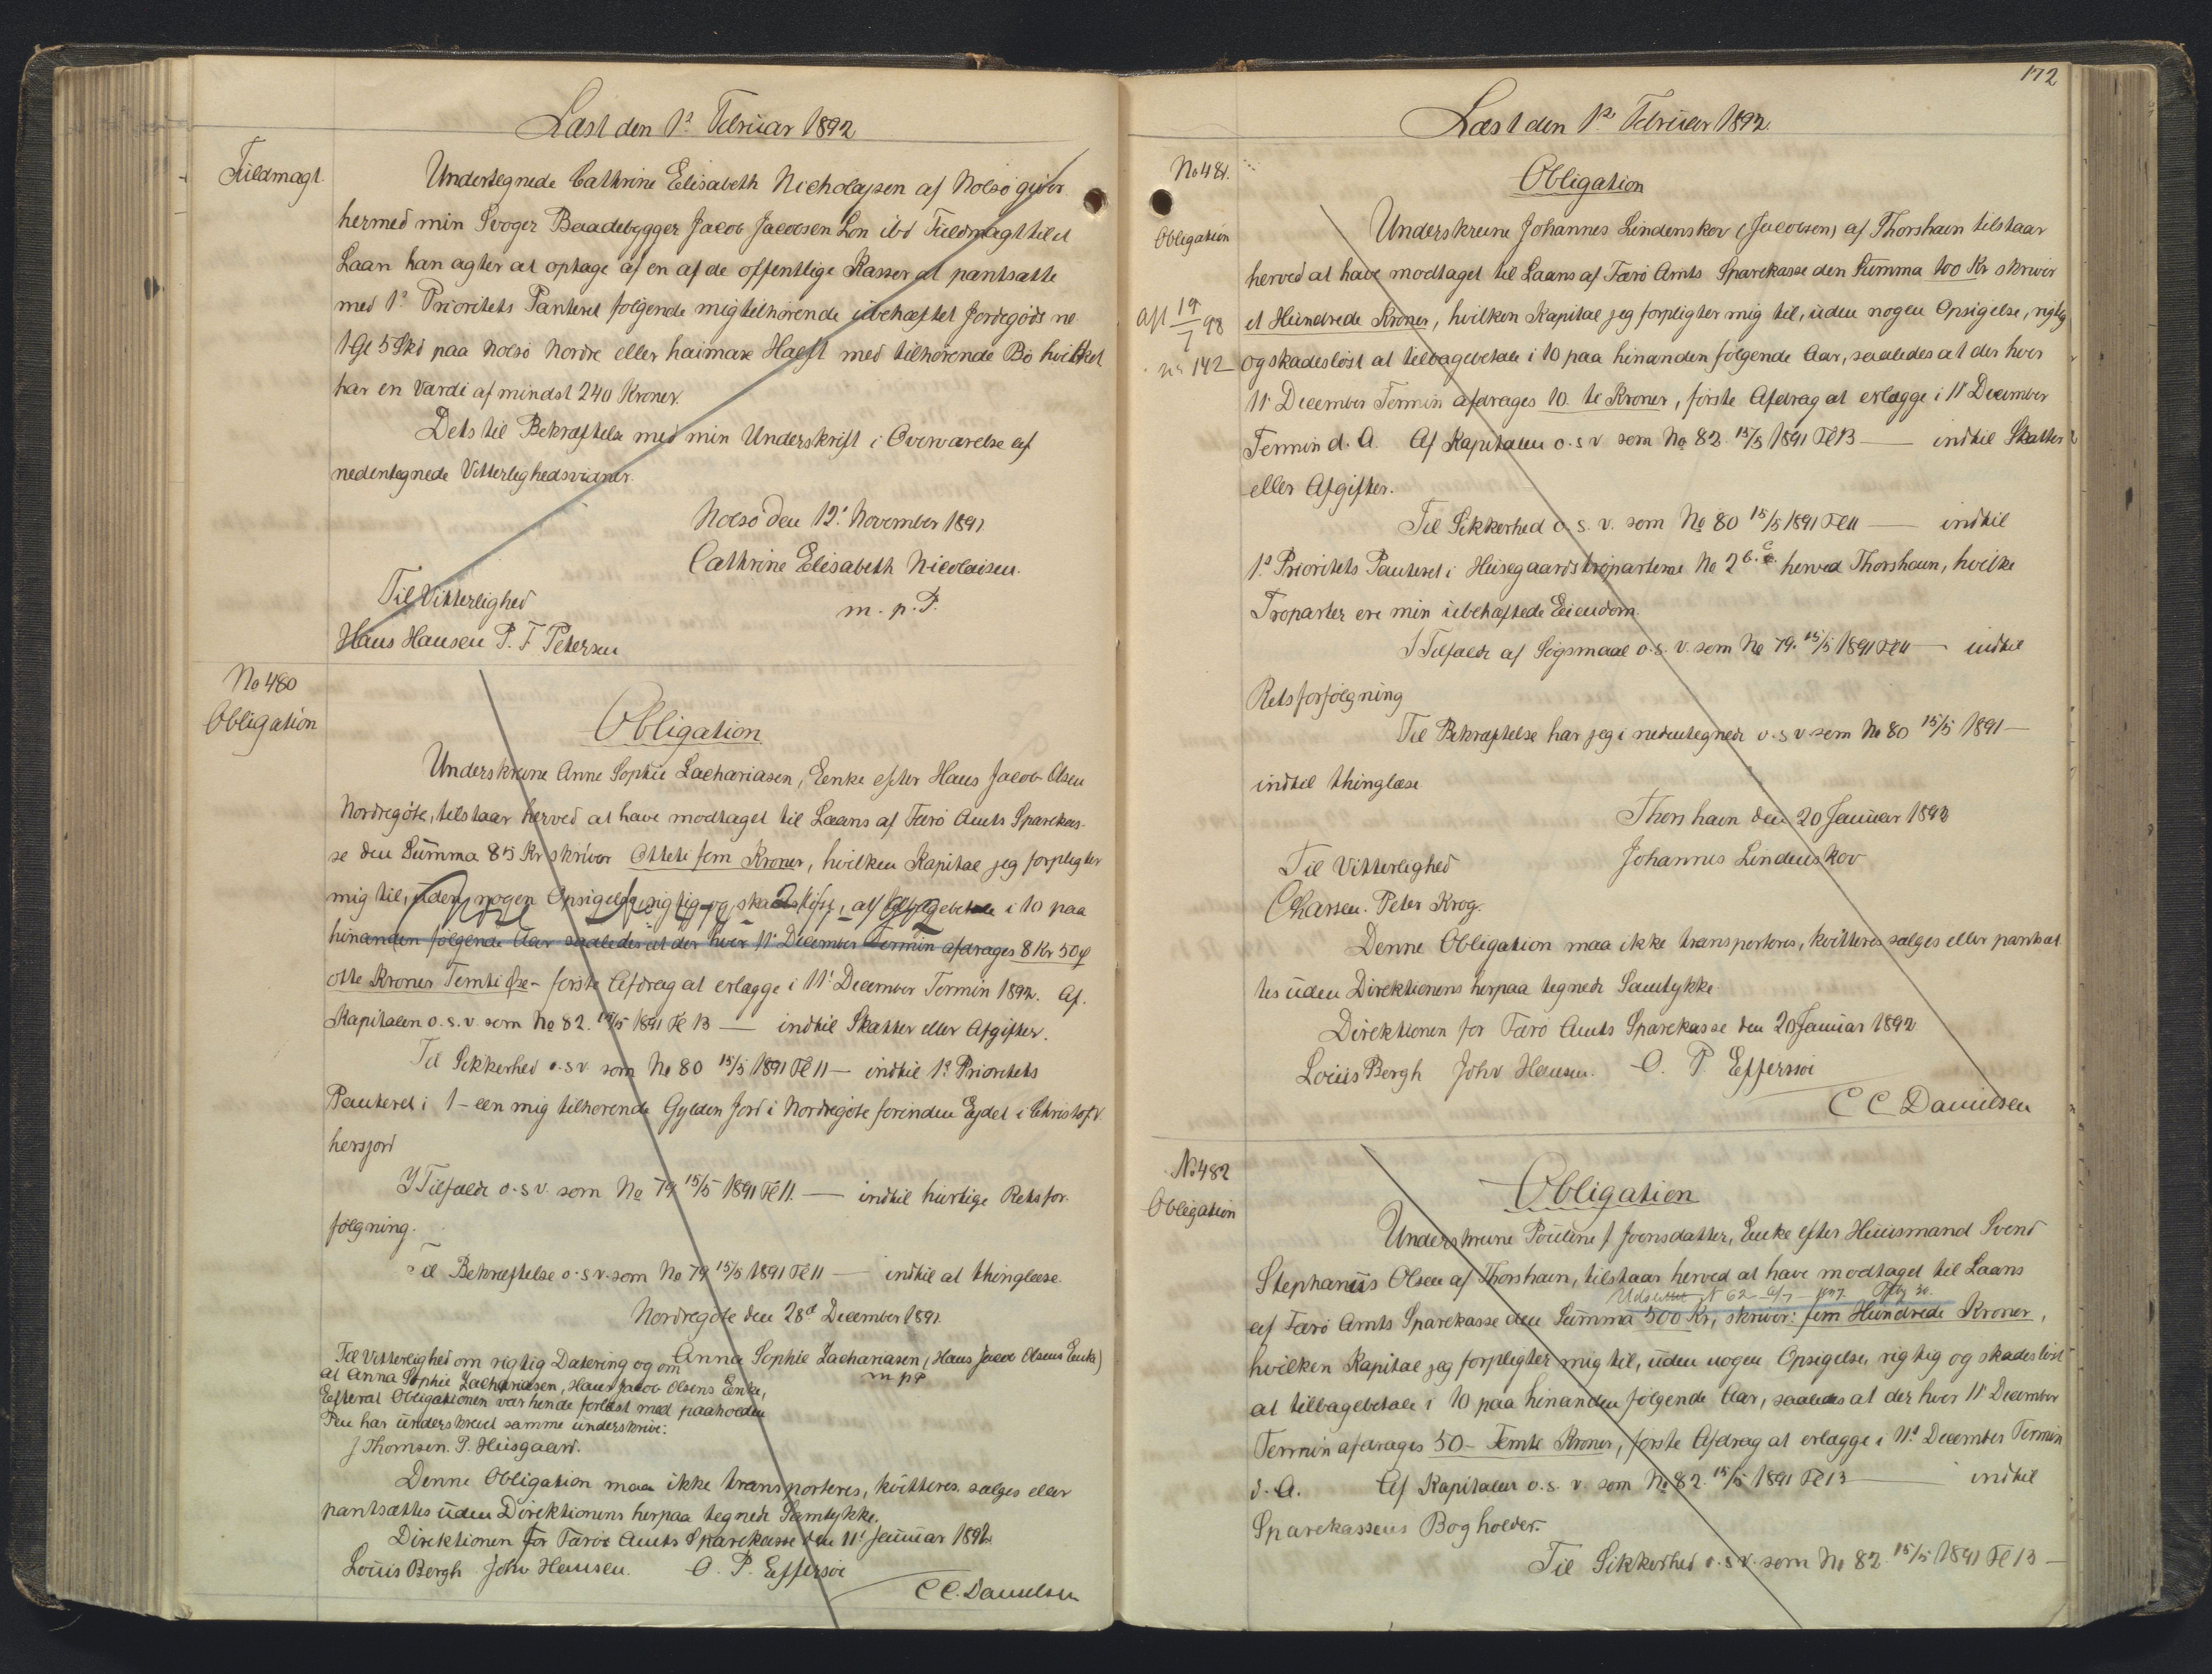 Læst den 1ª Februar 1892
Fuldmagt.
Undertegnede Cathrine Elisabeth Nicholajsen af Nolsø giver
hermed min Svoger Baadebygger Jacob Jacobsen Løn ibd Fuldmagt til et
Laan han agter at optage af en af de offentlige Kasser at pantsætte
med 1ª Prioritets Panteret følgende mig tilhørende übehæftet Jordegods nl
1 Gl 5 Skd paa Nolsø Nordre eller haimare Hælft med tilhørende Bø hvilket
har en Værdi af mindst 240 Kroner.
Dets til Bekræftelse med min Underskrift i Overværelse af
nedentegnede Vitterlighedsvidner.
Nolsø den 12' November 1891
Cathrine Elisabeth Nicolaisen.
m. p. P.
Til Vitterlighed
Hans Hansen P. F. Petersen
No 480
Obligation
Obligation
Underskrevne Anne Sophie Zachariasen, Eenke efter Hans Jacob Olsen
Nordregøte, tilstaar herved at have modtaget til Laans af Færø Amts Sparekas-
se den Summa 85 Kr skriver Otteti fem Kroner, hvilken Kapital jeg forpligter
mig til, uden nogen Opsigelse, rigtig og skadesløst, at tilbagebetale i 10 paa
hinanden følgende Aar saaledes at der hver 11' December Termin afdrages 8 Kr 50
otte Kroner Femti Øre - første Afdrag at erlægge i 11' December Termin 1892. Af
Kapitalen o. s. v. som No 82. 15/5 1891 Fl 13 — indtil Skatter eller Afgifter.
Til Sikkerhed o. s v. som No 80 15/5 1891 Fl 11 — indtil 1ª Prioritets
Panteret i 1 - een mig tilhørende Gylden Jord i Nordregøte forinden Eydet i Christoff-
hersjord
I Tilfælde o. s v. som No 79 15/5 1891 Fl 11. — indtil hurtige Retsfor-
følgning.
Til Bekræftelse o. s v. som No 79 15/5 1891 Fl 11 — indtil at thinglæse.
Nordregøte den 28d December 1891.
Til Vitterlighed om rigtig Datering og om Anna Sophie Zachariasen, (Hans Jacob Olsens Enke)
at Anna Sophie Zachariasen, Hans Jacob Olsens Enke, m p P
Efterat Obligationen var hende forlæst med paaholden
Pen har underskrevet samme underskrive.
J Thomsen. P. Husgaard.
Denne Obligation maa ikke transporteres, kvitteres. sælges eller
pantsættes uden Direktionens herpaa tegnede Samtykke.
Direktionen for Færø Amts Sparekasse den 11' Januar 1892.
Louis Bergh John Hansen. O. P. Effersøe
C C. Danielsen
172
Læst den 1ª Februar 1892.
No 481.
Obligation
Obligation
Underskrevne Johannes Lindenskov (Jacobsen) af Thorshavn tilstaar
herved at have modtaget til Laans af Færø Amts Sparekasse den Summa 100 Kr skriver
Afl 19/7 98
et Hundrede Kroner, hvilken Kapital jeg forpligter mig til, uden nogen Opsigelse, rigtig
No 142
og skadesløst at tilbagebetale i 10 paa hinanden følgende Aar, saaledes at der hver
11' December Termin afdrages 10. ti Kroner, første Afdrag at erlægge i 11' December
Termin d. A. Af Kapitalen o. s v som No 82. 15/5 1891 Fl 13 — indtil Skatter
eller Afgifter.
Til Sikkerhed o. s. v. som No 80 15/5 1891 Fl 11 — indtil
1ª Prioritets Panteret i Husegaardstroparterne No 2 b. c. herved Thorshavn, hvilke
Troparter ere min übehæftede Eiendom.
I Tilfælde af Søgsmaal o. s. v. som No 79. 15/5 1891 Fl 11 — indtil
Retsforfølgning
Til Bekræftelse har jeg i nedentegnede o. s v som No 80 15/5 1891 —
indtil thinglæse
Thorshavn den 20 Januar 1892
Til Vitterlighed Johannes Lindenskov
Peter Krog.
Denne Obligation maa ikke transporteres, kvitteres sælges eller pantsæt
tes uden Direktionens herpaa tegnede Samtykke
Direktionen for Færø Amts Sparekasse den 20 Januar 1892
Louis Bergh John Hansen. O. P Effersøe
C C Danielsen
No 482
Obligation
Obligation
Underskrevne Pouline J Joensdatter, Enke efter Huusmand Svend
Stephanus Olsen af Thorshavn, tilstaar herved at have modtaget til Laans
Udslettet N 62
af Færø Amts Sparekasse den Summa 500 Kr, skriver: fem Hundrede Kroner,
hvilken Kapital jeg forpligter mig til, uden nogen Opsigelse, rigtig og skadesløst
at tilbagebetale i 10 paa hinanden følgende Aar, saaledes at der hver 11' December
Termin afdrages 50 - Femti Kroner, første Afdrag at erlægge i 11' December Termin
d. A. Af Kapitalen o. s. v. som No 82. 15/5 1891 Fl 13 — indtil
Sparekassens Bogholder.
Til Sikkerhed o. s v. som No 82 15/5 1891 Fl 13 —